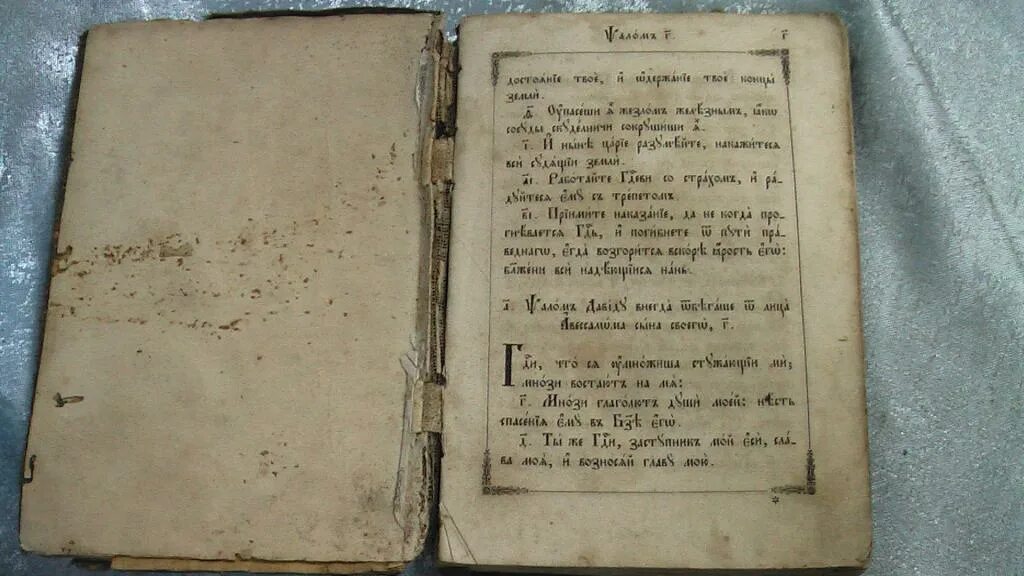 Ѱало́мъ г҃.
г҃
достоѧ́нїе твоѐ, и҆ ѡ҆держа́нїе твоѐ концы̀
землѝ.
ѳ҃. Оу҆пасе́ши ѧ҆̀ жезло́мъ желѣ́знымъ, ꙗ҆́кѡ
сосу́ды скуде́льничи сокруши́ши ѧ҆̀.
і҃. И҆ ны́нѣ ца́рїе разумѣ́йте, накажи́тесѧ
всѝ судѧ́щїи землѝ.
а҃і. Рабо́тайте Гдⷭ҇еви со стра́хомъ, и҆ ра́-
дуйтесѧ є҆му̀ съ тре́петомъ.
в҃і. Прїими́те наказа́нїе, да не когда̀ про-
гнѣ́ваетсѧ Гдⷭ҇ь, и҆ поги́бнете ѿ путѝ пра́-
веднагѡ, є҆гда̀ возгори́тсѧ вско́рѣ ꙗ҆́рость є҆гѡ̀:
бл҃же́ни всѝ надѣ́ющїисѧ на́нь.
а҃. Ѱало́мъ Даві́ду внегда̀ ѿбѣга́ше ѿ лица̀
А҆вессалѡ́ма сы́на своегѡ̀, г҃.
Гдⷭ҇и, что́ сѧ ᲂу҆мно́жиша стужа́ющїи мѝ;
мно́зи востаю́тъ на мѧ̀:
г҃. Мно́зи глаго́лютъ душѝ мое́й: нѣ́сть
спасе́нїѧ є҆му̀ въ Бз҃ѣ є҆гѡ̀.
д҃. Ты́ же Гдⷭ҇и, засту́пникъ мо́й є҆сѝ, сла́-
ва моѧ̀, и҆ возносѧ́й главу̀ мою̀.
*